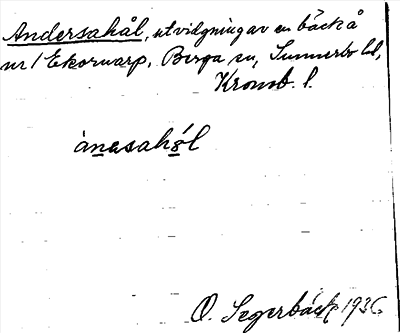 Andersahål, utvidgning av en bäck å
nr 1 Ekornarp, Berga sn, Sunnerbo hd,
Kronob. l.
ànasahål
O. Segerbäck 1936